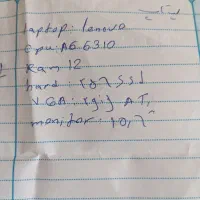 laptop: lenovo
Cpu: A6 6310
Ram 12
hard: SSd
VGA: ATi
monitor: 10,7"